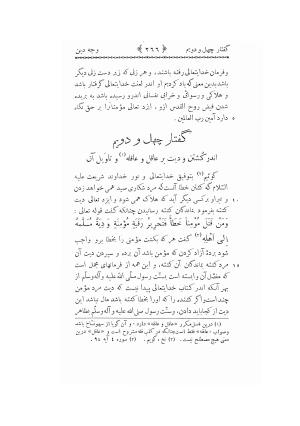 گفتار چهل و دویم ﴿ ۲۶۶ ﴾ وجه دین
و فرمان خدایتعالی رفته باشند، و هر زنی که زبر دست زنی دیگر
باشد بدین معنی که یاد کردیم او اندر لعنت خدایتعالی گرفتار باشد
و هلاکی و رسوائی و خزای نفسانی اندرو رسیده باشد به بریده
شدن فیض روح القدس ازو، ایزد تعالی مؤمنانرا بر حق نگاه
دارد آمین رب العالمین.
گفتار چهل و دویم
اندر کشتن و دیت بر عاقل و عاقله (۱) و تاویل آن
گوئیم (۲) بتوفیق خدایتعالی و نور خداوند شریعت علیه
السّلام که کشتن خطا آنست که مرد شکاری صید همی خواهد زدن
و تیر او بر کسی دیگر آید که هلاک همی شود و ایزد تعالی دیت
کشته بفرمود بماندگان کشته رسانیدن چنانکه گفت قوله تعالی :
وَمَنْ قَتَلَ مُؤْمِنًا خَطَأً فَتَحْرِيرُ رَقَبَةٍ مُؤْمِنَةٍ وَ دِيَةٌ مُسَلَّمَةٌ
إِلَى أَهْلِهِ (۳) گفت هر که بکشت مؤمنی را بخطا برو واجب
شود بردهٔ آزاد کردن که مؤمن باشد آن برده و سپردن دیت آن
کشته بماندگان آن کشته، و این همه از فرمانهای مجمل است
که مفصّل آن وابسته است برسول صلی الله علیه و آله وسلّم از
بهر آنکه اندر کتاب خدایتعالی پیدا نیست که دیت مرد مؤمن
چند است واگر کشنده را که اورا بخطا کشته باشد مال نباشد این
دیت از کجا باید دادن، و سنّت رسول صلی الله علیه و آله وسلّم ظاهر
(۱) درین فصل مکرر «عاقل و عاقله» دارد، و آن گویا از سهو نساخ باشد
وصواب «عاقله» فقط است چنانکه در کتب فقه مشروح است و «عاقل» درین
معنی هیچ مصطلح نیست. (۲) نخ، گویم. (۳) سوره ۴ آیه ۹۴.